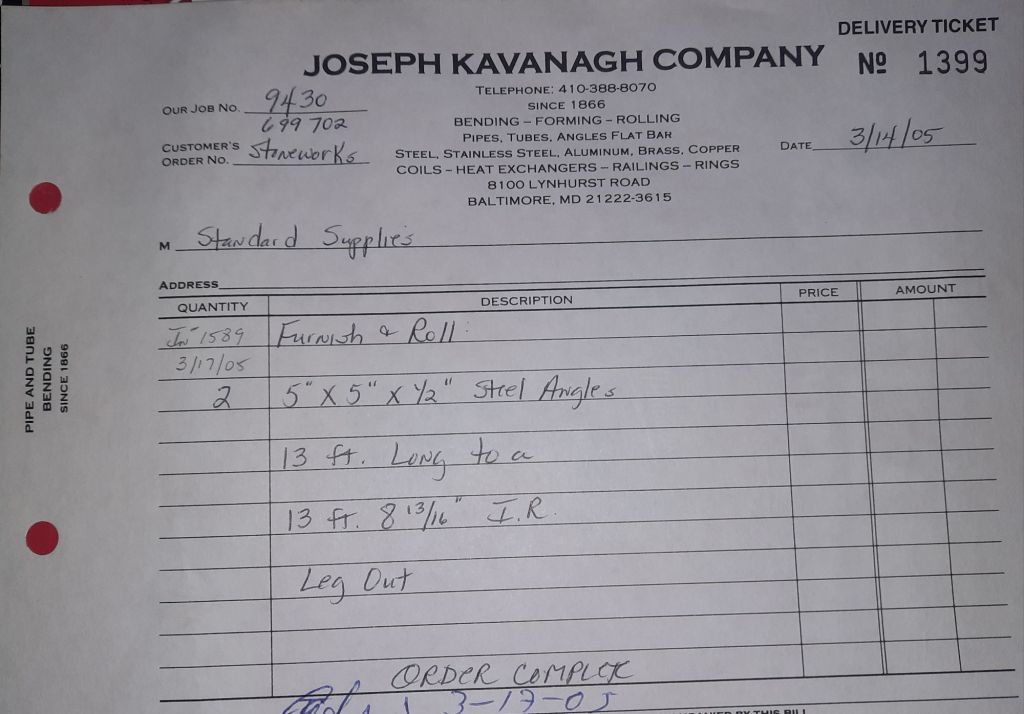 DELIVERY TICKET
JOSEPH KAVANAGH COMPANY
Nº 1399
TELEPHONE: 410-388-8070
SINCE 1866
BENDING – FORMING – ROLLING
PIPES, TUBES, ANGLES FLAT BAR
STEEL, STAINLESS STEEL, ALUMINUM, BRASS, COPPER
COILS – HEAT EXCHANGERS – RAILINGS – RINGS
8100 LYNHURST ROAD
BALTIMORE, MD 21222-3615
OUR JOB NO. 9430
699702
CUSTOMER'S
ORDER NO. Stoneworks
DATE 3/14/05
M Standard Supplies
ADDRESS
QUANTITY DESCRIPTION PRICE AMOUNT
In 1589 Furnish & Roll:
3/17/05
2 5" X 5" X 1/2" Steel Angles
13 ft. Long to a
13 ft. 8 13/16" I.R.
Leg Out
ORDER COMPLETE
3-17-05
BY THIS BILL
PIPE AND TUBE
BENDING
SINCE 1866